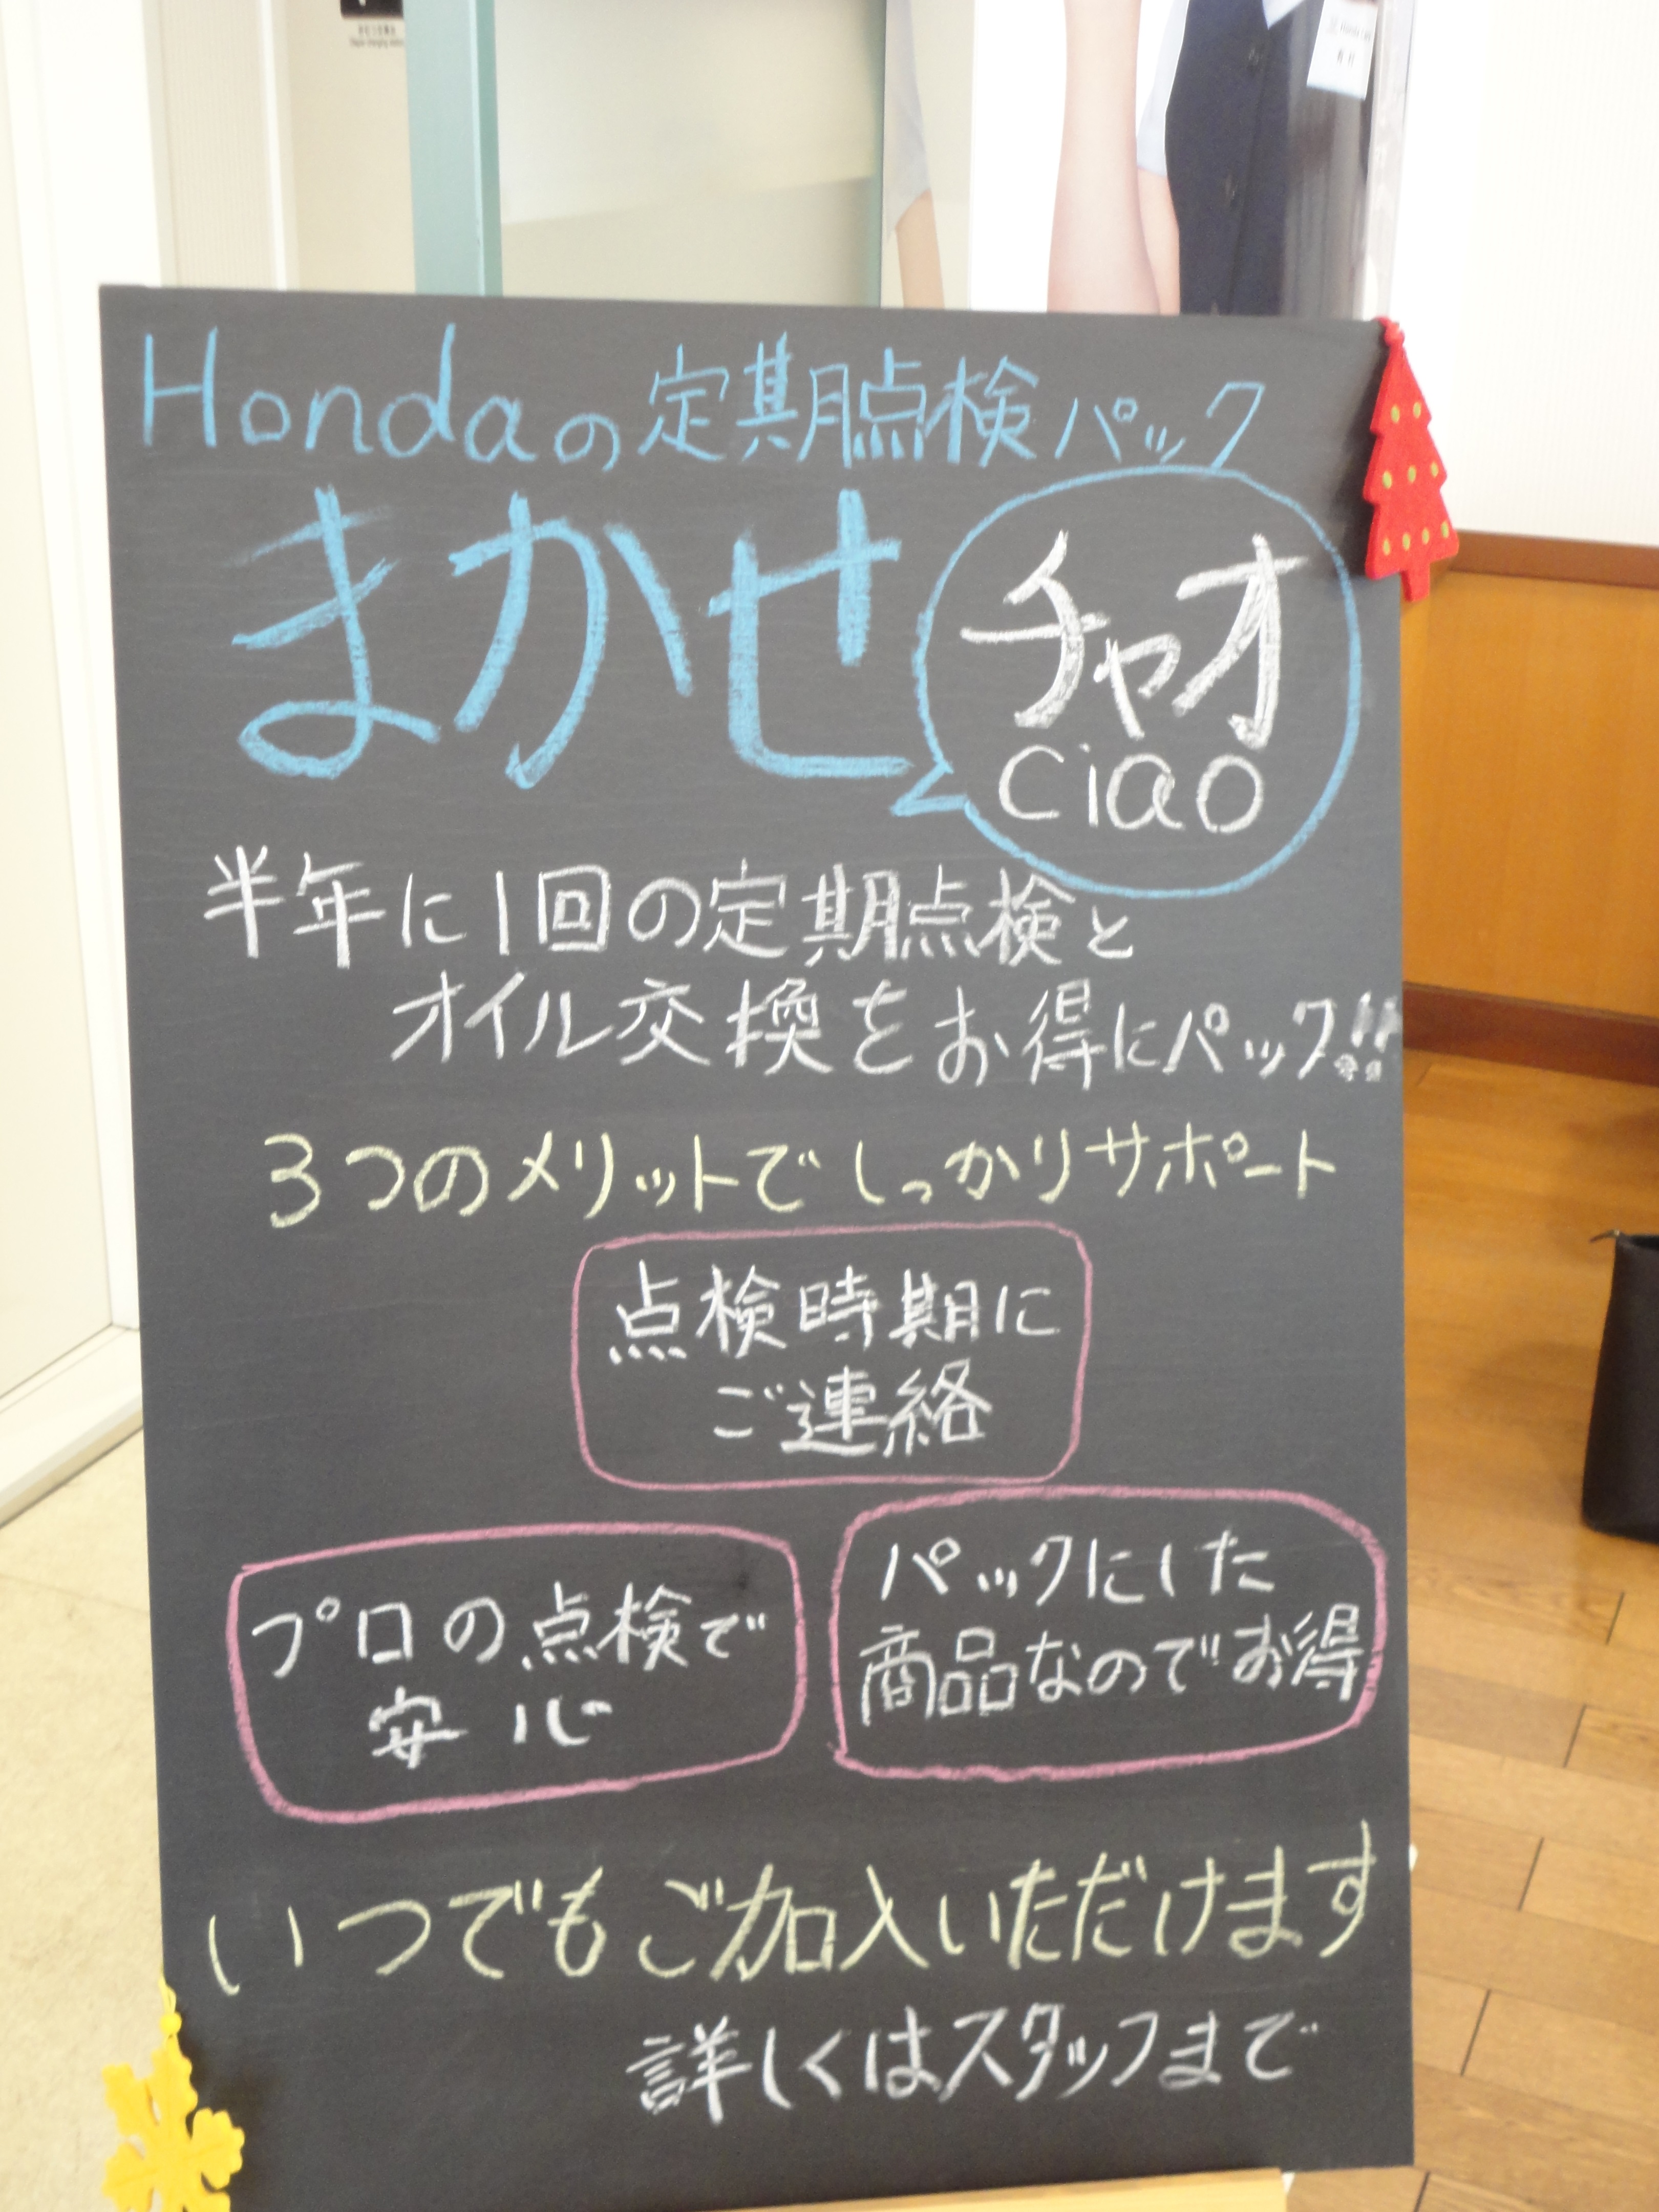 Hondaの定期点検パック
まかせ
チャオ
ciao
半年に1回の定期点検と
オイル交換をお得にパック!!
3つのメリットでしっかりサポート
点検時期に
ご連絡
プロの点検で
安心
パックにした
商品なのでお得
いつでもご加入いただけます
詳しくはスタッフまで